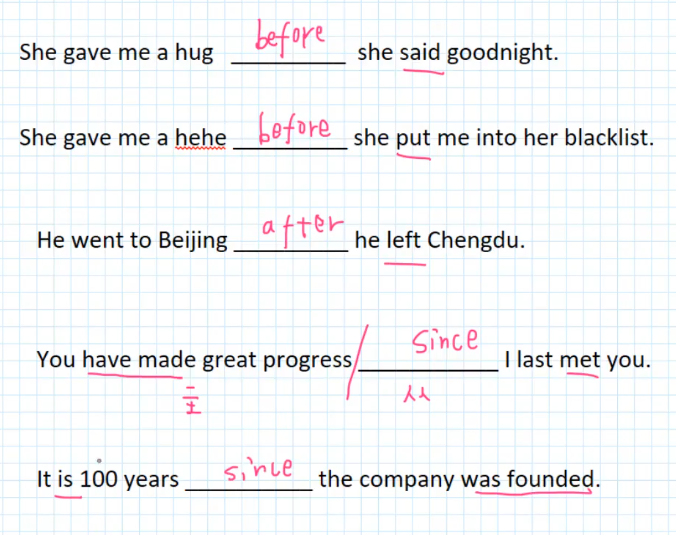 She gave me a hug before she said goodnight.
She gave me a hehe before she put me into her blacklist.
He went to Beijing after he left Chengdu.
You have made great progress since I last met you.
It is 100 years since the company was founded.